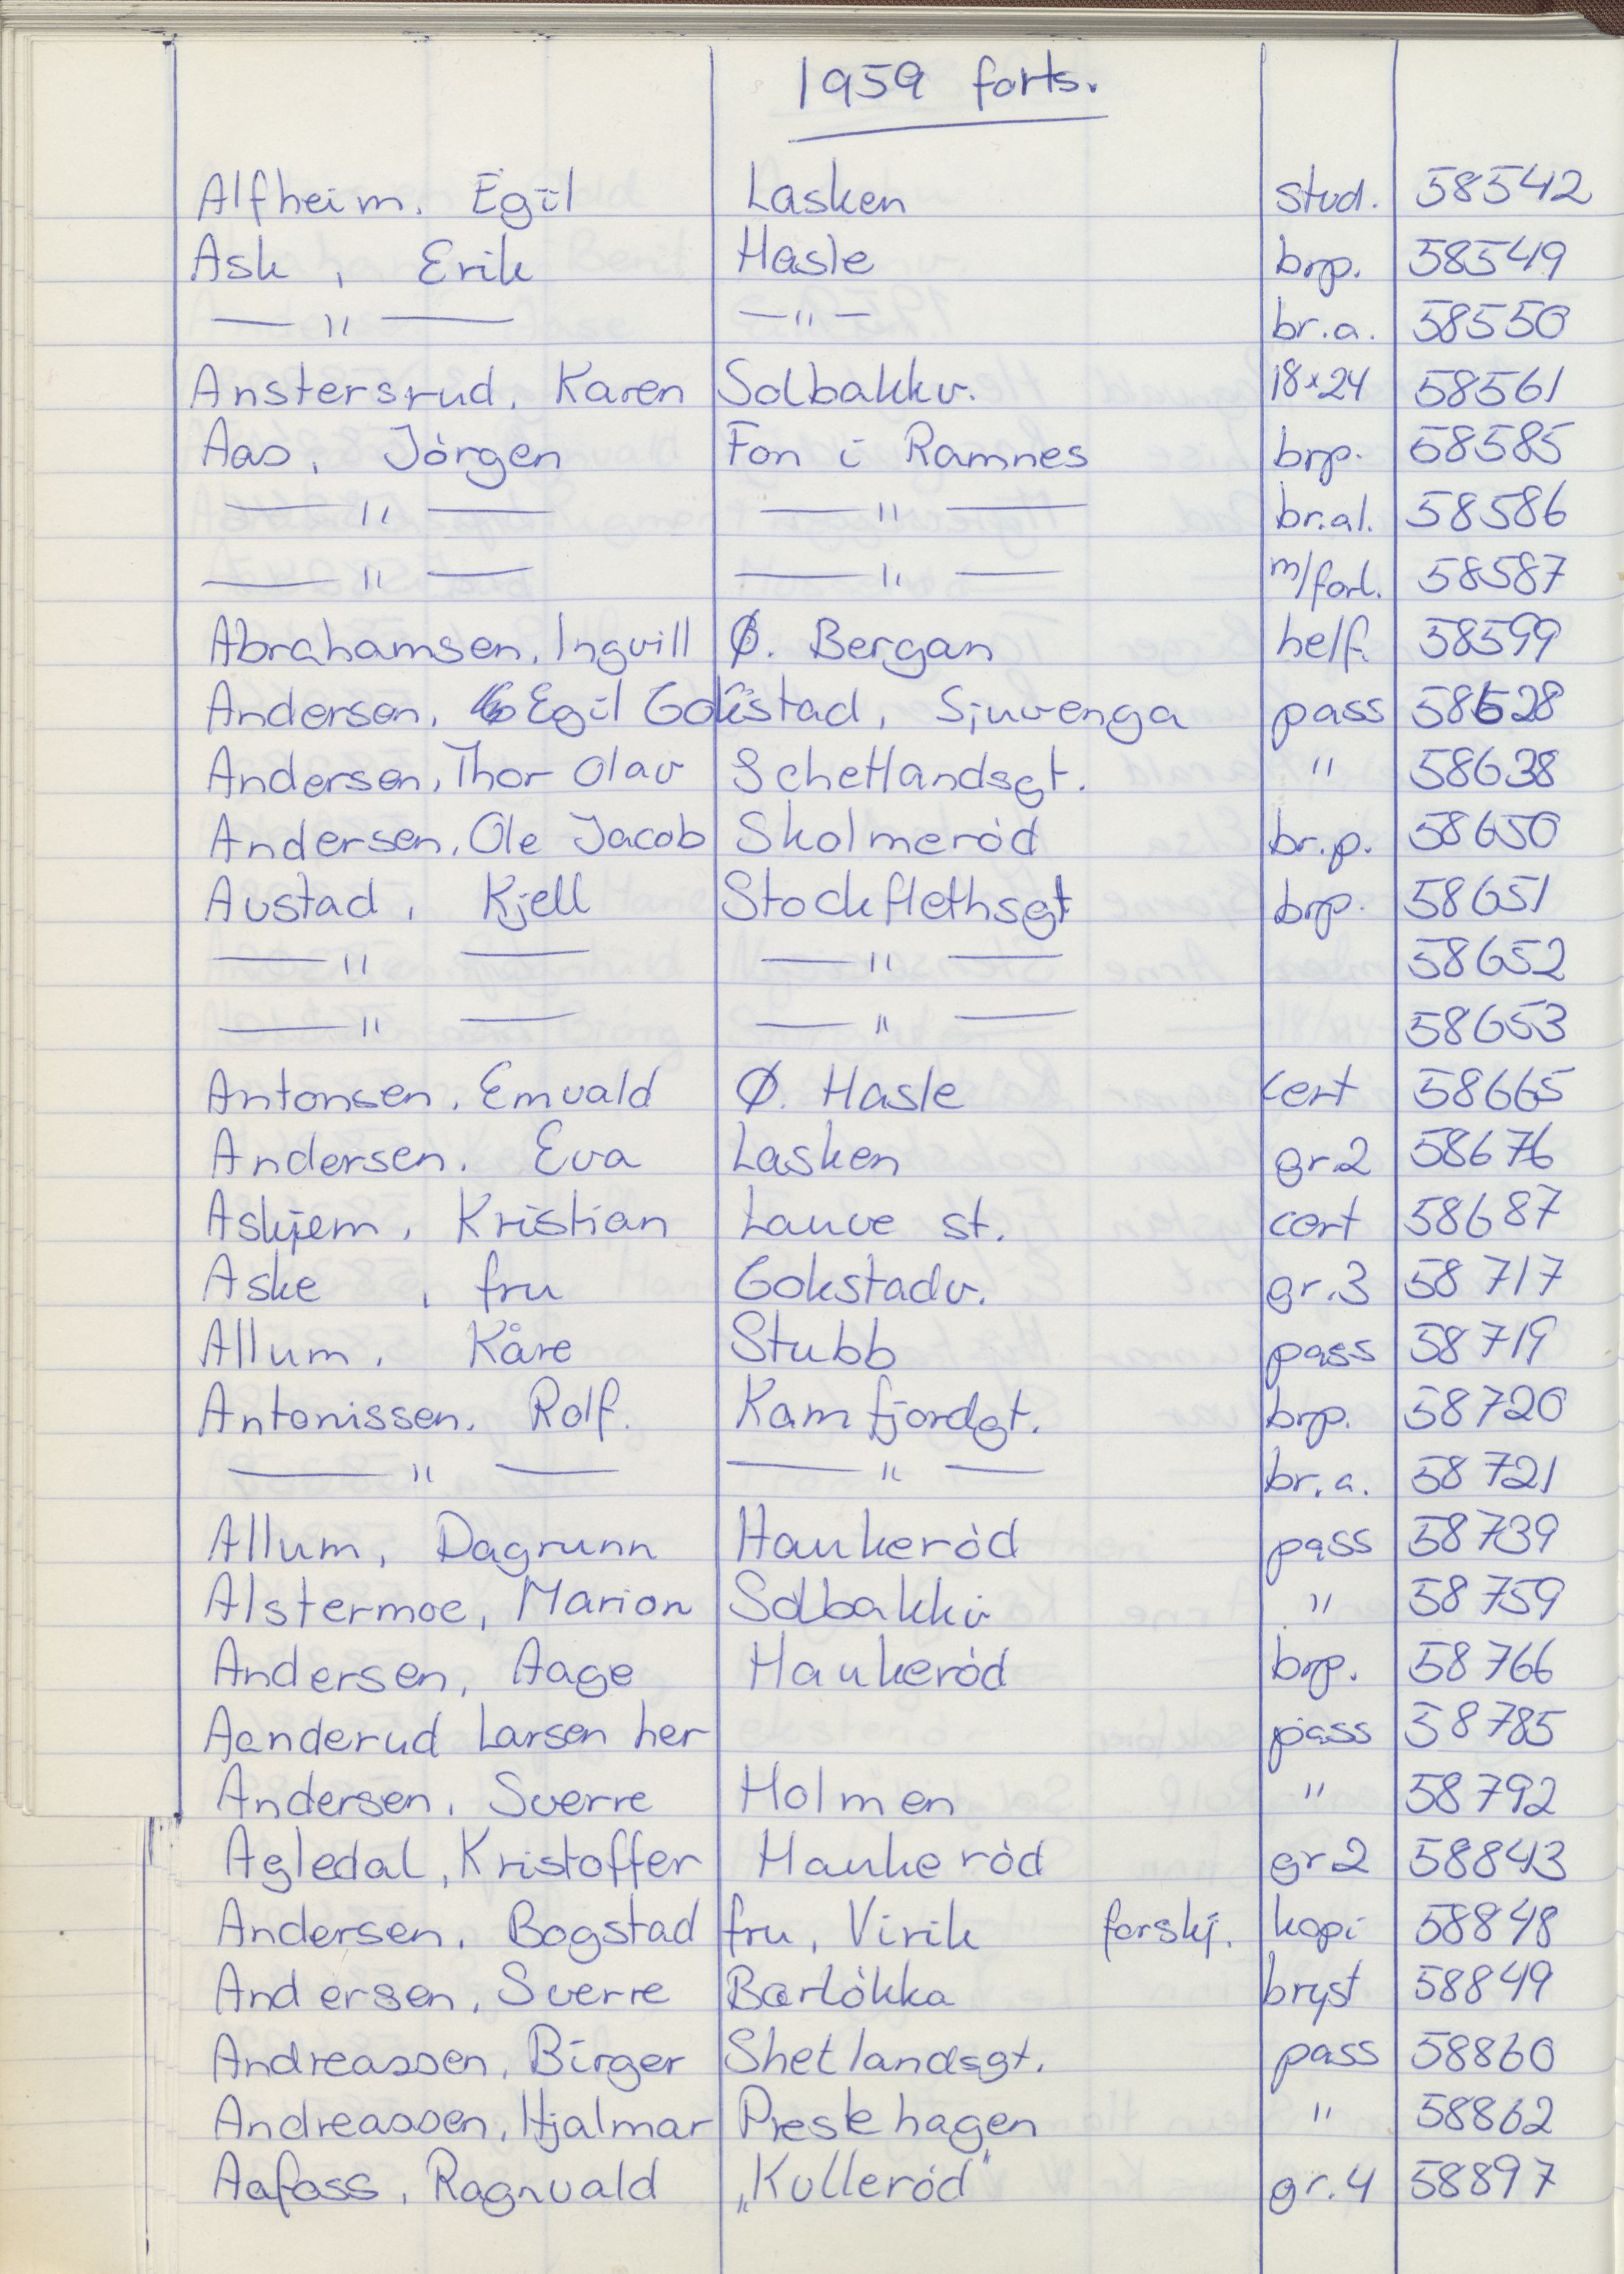 1959 forts.
Alfheim, Egil Lasken stud. 58542
Ask, Erik Hasle brp. 58549
— " — — " — br.a. 58550
Anstersrud, Karen Solbakkv. 18x24 58561
Aas, Jörgen Fon i Ramnes brp. 58585
— " — — " — br.al. 58586
— " — — " — m/forl. 58587
Abrahamsen, Ingvill Ø. Bergan helf. 58599
Andersen, Egil Gokstad, Sjuvenga pass 58628
Andersen, Thor Olav Schetlandsgt. " 58638
Andersen, Ole Jacob Skolmeröd br.p. 58650
Austad, Kjell Stockflethsgt brp. 58651
— " — — " — 58652
— " — — " — 58653
Antonsen, Emvald Ø. Hasle cert 58665
Andersen, Eva Lasken gr2 58676
Askjem, Kristian Lauve st. cert 58687
Aske, fru Gokstadv. gr.3 58717
Allum, Kåre Stubb pass 58719
Antonissen, Rolf. Kamfjordgt. brp. 58720
— " — — " — br.a. 58721
Allum, Dagrunn Haukeröd pass 58739
Alstermoe, Marion Solbakkv " 58759
Andersen, Aage Haukeröd brp. 58766
Aanderud Larsen her pass 58785
Andersen, Sverre Holmen " 58792
Agledal, Kristoffer Haukeröd gr2 58843
Andersen, Bogstad fru, Virik forskj. kopi 58848
Andersen, Sverre Barlökka bryst 58849
Andreassen, Birger Shetlandsgt. pass 58860
Andreassen, Hjalmar Prestehagen " 58862
Aafoss, Ragnvald „Kulleröd" gr.4 58897